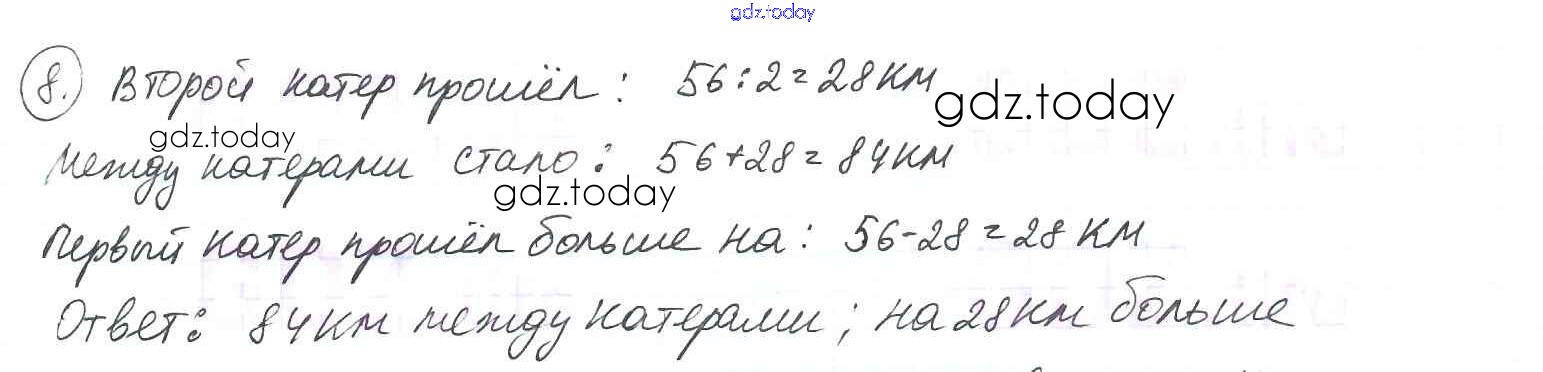 gdz.today
8. Второй катер прошёл: 56:2=28км
gdz.today
gdz.today
Между катерами стало: 56+28=84км
gdz.today
Первый катер прошёл больше на: 56-28=28 км
Ответ: 84км между катерами; на 28км больше